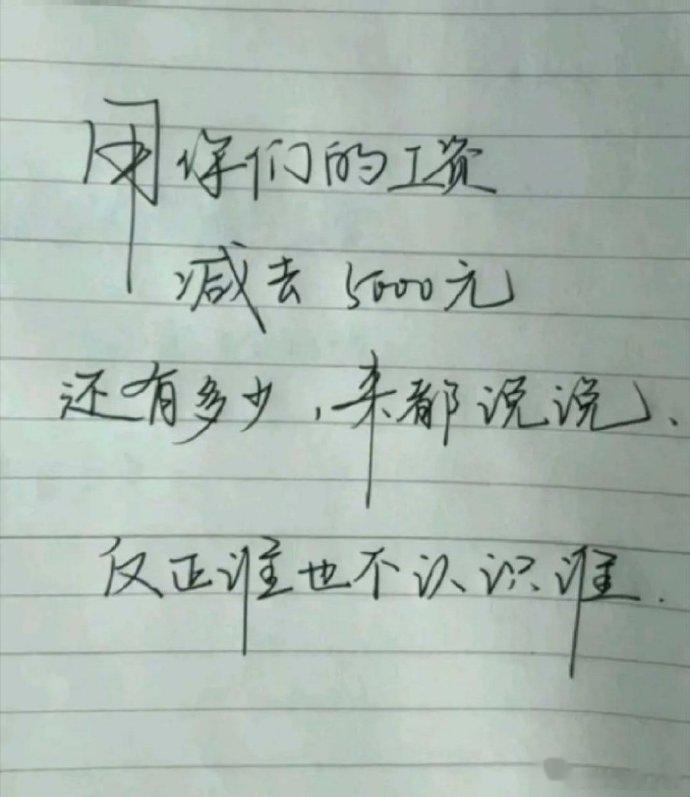 用你们的工资
减去5000元
还有多少,来都说说、
反正谁也不认识谁.